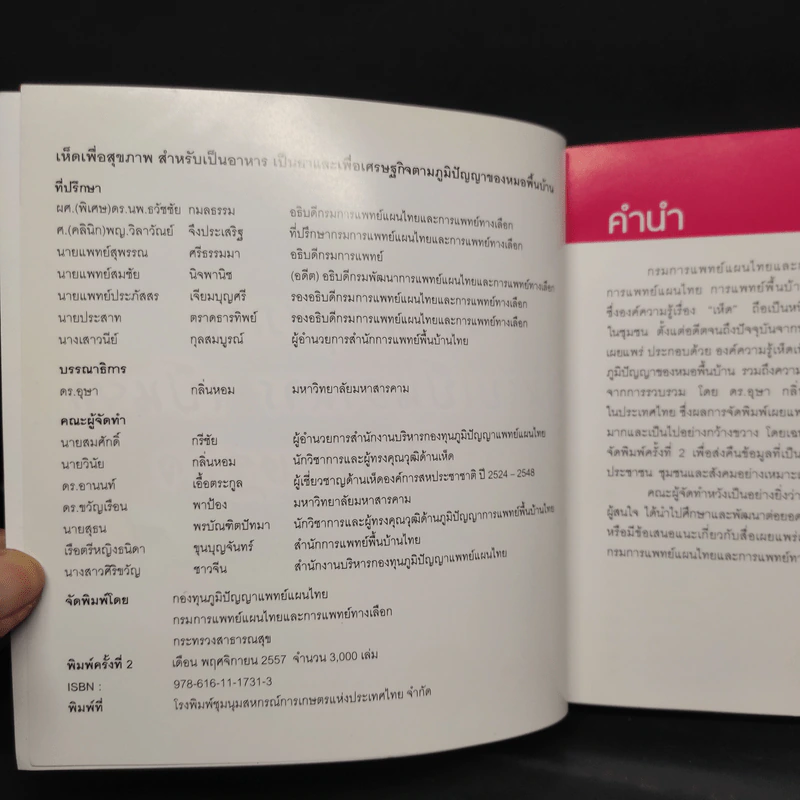 เห็ดเพื่อสุขภาพ สำหรับเป็นอาหาร เป็นยาและเพื่อเศรษฐกิจตามภูมิปัญญาของหมอพื้นบ้าน
ที่ปรึกษา
ผศ.(พิเศษ)ดร.นพ.ธวัชชัย กมลธรรม อธิบดีกรมการแพทย์แผนไทยและการแพทย์ทางเลือก
ศ.(คลินิก)พญ.วิลาวัณย์ จึงประเสริฐ ที่ปรึกษากรมการแพทย์แผนไทยและการแพทย์ทางเลือก
นายแพทย์สุพรรณ ศรีธรรมมา อธิบดีกรมการแพทย์
นายแพทย์สมชัย นิจพานิช (อดีต) อธิบดีกรมพัฒนาการแพทย์แผนไทยและการแพทย์ทางเลือก
นายแพทย์ประภัสสร เจียมบุญศรี รองอธิบดีกรมการแพทย์แผนไทยและการแพทย์ทางเลือก
นายประสาท ตราดธารทิพย์ รองอธิบดีกรมการแพทย์แผนไทยและการแพทย์ทางเลือก
นางเสาวนีย์ กุลสมบูรณ์ ผู้อำนวยการสำนักการแพทย์พื้นบ้านไทย
บรรณาธิการ
ดร.อุษา กลิ่นหอม มหาวิทยาลัยมหาสารคาม
คณะผู้จัดทำ
นายสมศักดิ์ กรีชัย ผู้อำนวยการสำนักงานบริหารกองทุนภูมิปัญญาแพทย์แผนไทย
นายวินัย กลิ่นหอม นักวิชาการและผู้ทรงคุณวุฒิด้านเห็ด
ดร.อานนท์ เอื้อตระกูล ผู้เชี่ยวชาญด้านเห็ดองค์การสหประชาชาติ ปี 2524 – 2548
ดร.ขวัญเรือน พาป้อง มหาวิทยาลัยมหาสารคาม
นายสุธน พรบัณฑิตปัทมา นักวิชาการและผู้ทรงคุณวุฒิด้านภูมิปัญญาการแพทย์พื้นบ้านไทย
เรือตรีหญิงธนิดา ขุนบุญจันทร์ สำนักการแพทย์พื้นบ้านไทย
นางสาวศิริขวัญ ชาวจีน สำนักงานบริหารกองทุนภูมิปัญญาแพทย์แผนไทย
จัดพิมพ์โดย กองทุนภูมิปัญญาแพทย์แผนไทย
กรมการแพทย์แผนไทยและการแพทย์ทางเลือก
กระทรวงสาธารณสุข
พิมพ์ครั้งที่ 2 เดือน พฤศจิกายน 2557 จำนวน 3,000 เล่ม
ISBN : 978-616-11-1731-3
พิมพ์ที่ โรงพิมพ์ชุมนุมสหกรณ์การเกษตรแห่งประเทศไทย จำกัด
คำนำ
กรมการแพทย์แผนไทยและ
การแพทย์แผนไทย การแพทย์พื้นบ้าน
ซึ่งองค์ความรู้เรื่อง “เห็ด” ถือเป็น
ในชุมชน ตั้งแต่อดีตจนถึงปัจจุบันจาก
เผยแพร่ ประกอบด้วย องค์ความรู้เห็ด
ภูมิปัญญาของหมอพื้นบ้าน รวมถึงความ
จากการรวบรวม โดย ดร.อุษา
ในประเทศไทย ซึ่งผลการจัดพิมพ์เผยแพร่
มากและเป็นไปอย่างกว้างขวาง
จัดพิมพ์ครั้งที่ 2 เพื่อส่งคืนข้อมูลที่เป็น
ประชาชน ชุมชนและสังคมอย่างเหมาะ
คณะผู้จัดทำหวังเป็นอย่างยิ่งว่า
ผู้สนใจ ได้นำไปศึกษาและพัฒนาต่อยอด
หรือมีข้อเสนอแนะเกี่ยวกับสื่อเผยแพร่
กรมการแพทย์แผนไทยและการแพทย์